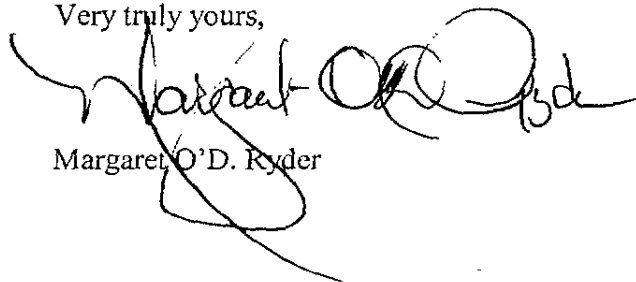 Very truly yours,
Margaret O'D. Ryder
Margaret O'D. Ryder